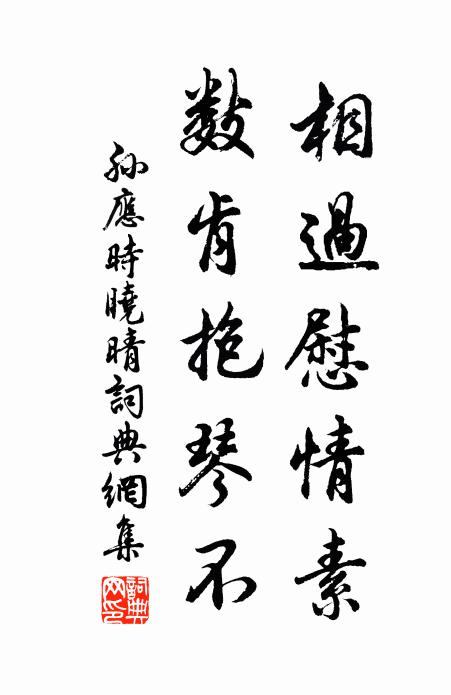 相過慰情素
數肯抱琴不
孫應時曉晴詞典網集
詞典網印